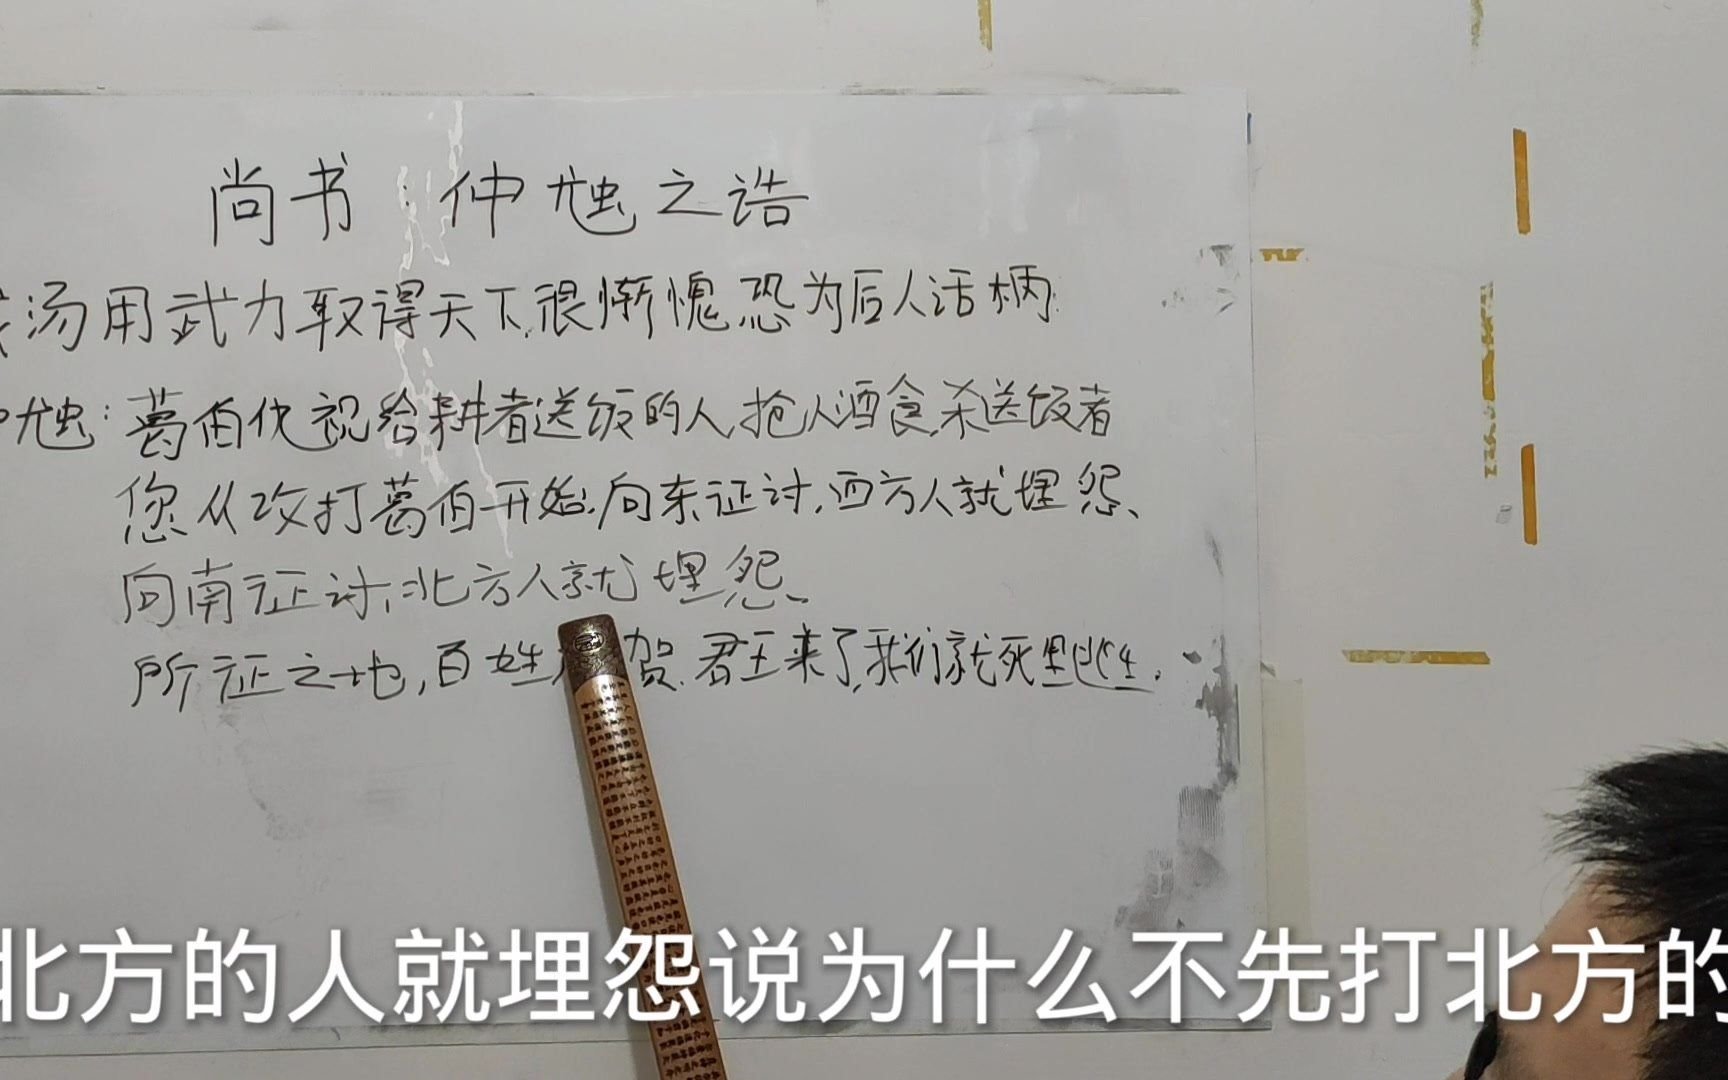 尚书 仲虺之诰
汤用武力取得天下,很惭愧恐为后人话柄
虺:葛伯仇视给耕者送饭的人,抢人酒食,杀送饭者
您从攻打葛伯开始,向东证讨,西方人就埋怨、
向南证讨,北方人就埋怨、
所证之地,百姓 贺.君王来了,我们就死里逃生.
北方的人就埋怨说为什么不先打北方的